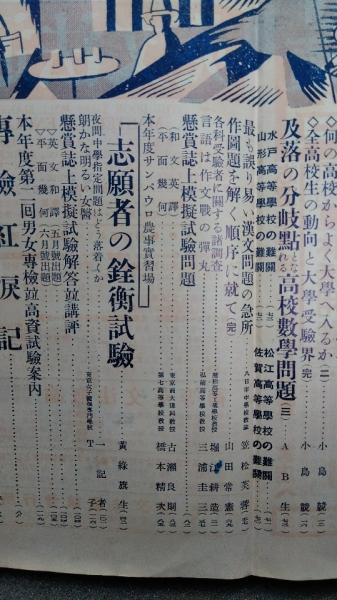 ◇何の高校からよく大學へ入るか(二)
小島競
◇全高校生の動向と大學受驗界(完)
小島競
及落の分岐點となる高校數學問題(三)
AB生
水戸高等學校の難關
山形高等學校の難關
松江高等學校の難關
佐賀高等學校の難關
最も誤り易い漢文問題の急所
笠松芙蓉
作圖題を解く順序に就て(完)
山田常憲
各科受驗者に關する諸調査
堀江耕造
言語は作文戰の彈丸
弘前高等學校教授
三浦圭三
懸賞誌上模擬試驗問題
(和文英譯)
東京商大豫科教授
古瀬良則
(平面幾何)
第七高等學校教授
橋本精次
本年度サンパウロ農事實習場
「志願者の銓衡試驗
黄綠旗生
夜間中學指定問題はどう落着くか
一記者
朗かな明るい女醫
T子
懸賞誌上模擬試驗解答並講評
▽英文和譯 五月號出題
▽平面幾何 五月號出題
本年度第二囘男女專檢並高資試驗案内
專檢紅涙記